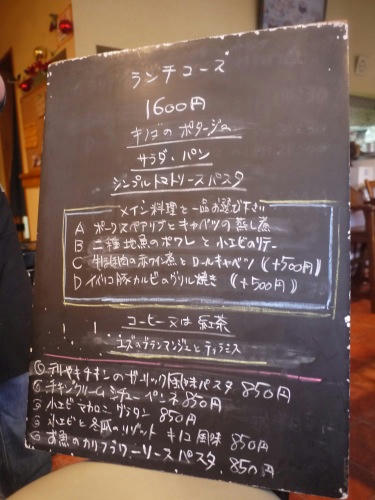 ランチコース
1600円
きのこの ポタージュ
サラダ・パン
シンプルトマトソースパスタ
メイン料理を一品お選び下さい
A ポークスペアリブとキャベツの蒸し煮
B 二種地魚のポワレと小エビのソテー
C 牛頬肉の赤ワイン煮とロールキャベツ (+500円)
D イベリコ豚カルビのグリル焼き (+500円)
コーヒー又は紅茶
ユズのブランマンジェとティラミス
テリヤキチキンのガーリック風味パスタ 850円
チキンクリームシチューペンネ 850円
小エビマカロニグラタン 850円
小エビと冬瓜のリゾット キノコ風味 850円
お魚のカリフラワーソースパスタ 850円